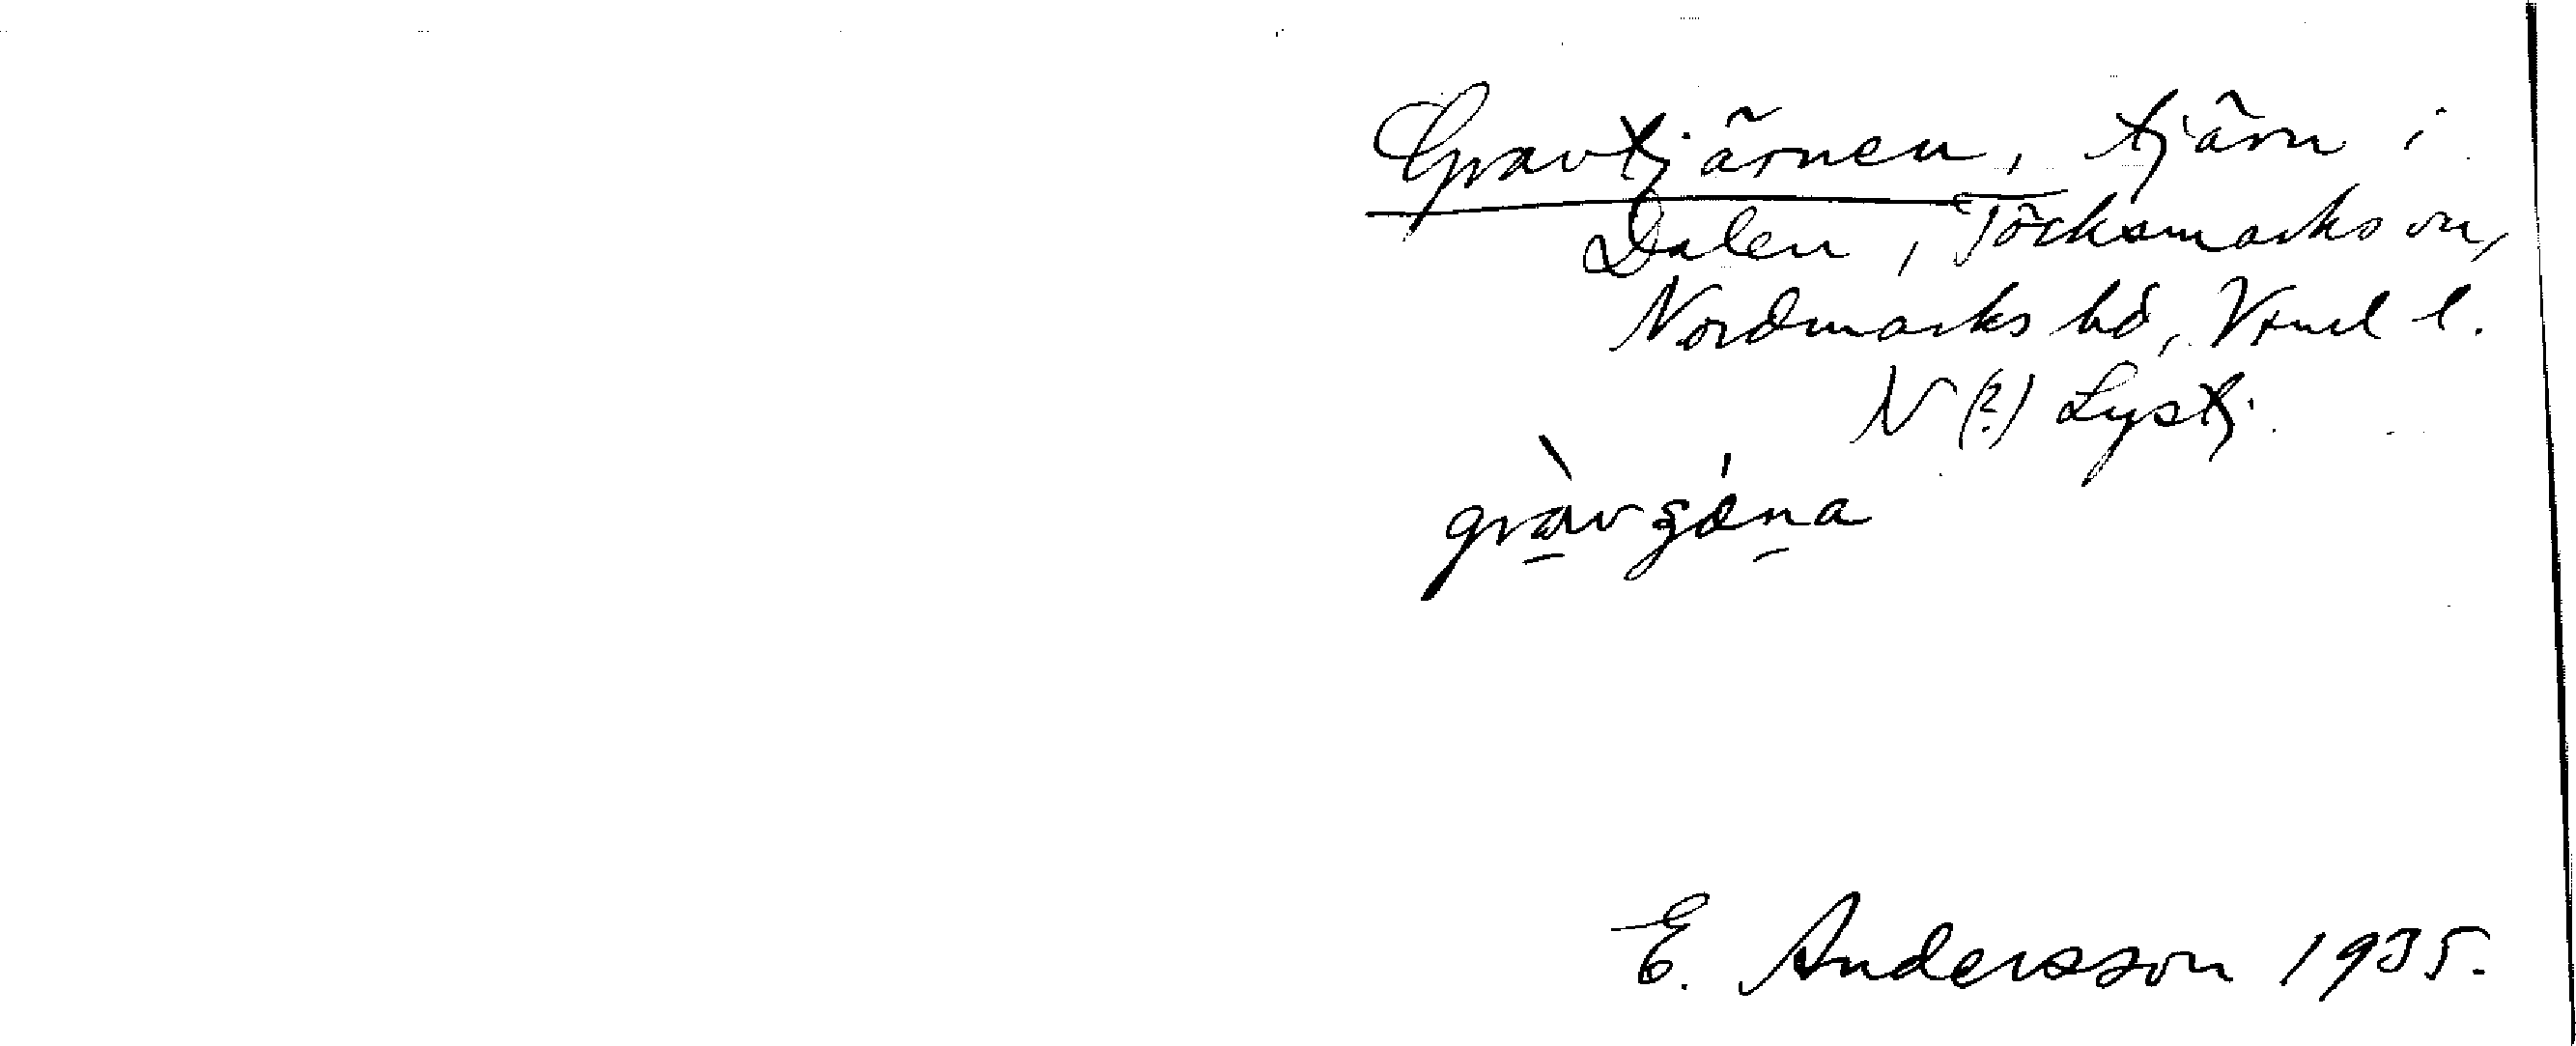 Gravtjärnen, tjärn i
Dalen, Töcksmarks sn,
Nordmarks hd, Vrml l.
N (?) Lystj.
gràvȿǽna
E. Andersson 1935.